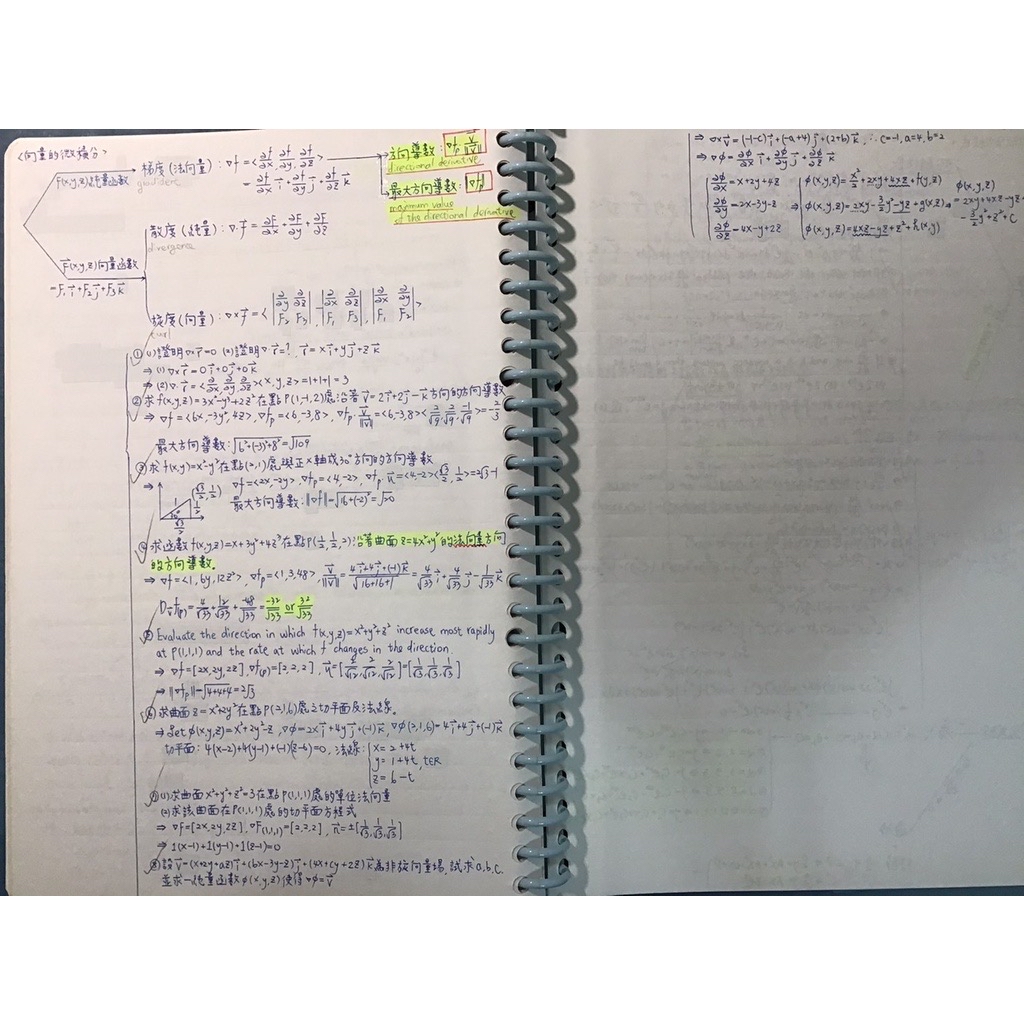 <向量的微積分>
f(x,y,z)純量函數
梯度(法向量): ∇f = <∂f/∂x, ∂f/∂y, ∂f/∂z>
= ∂f/∂x i⃗ + ∂f/∂y j⃗ + ∂f/∂z k⃗
方向導數: ∇f·v⃗/||v⃗||
directional derivative
最大方向導數: |∇f|
maximum value
of the directional derivative
散度(純量): ∇·f⃗ = ∂F/∂x + ∂F/∂y + ∂F/∂z
divergence
F⃗(x,y,z)向量函數
= F₁i⃗ + F₂j⃗ + F₃k⃗
旋度(向量): ∇×f⃗ = < |∂/∂y ∂/∂z; F₂ F₃|, -|∂/∂x ∂/∂z; F₁ F₃|, |∂/∂x ∂/∂y; F₁ F₂| >
curl
① (1)證明∇×r⃗=0 (2)證明∇·r⃗=? r⃗=xi⃗+yj⃗+zk⃗
⇒ (1) ∇×r⃗ = 0i⃗+0j⃗+0k⃗
⇒ (2) ∇·r⃗ = <∂/∂x, ∂/∂y, ∂/∂z><x,y,z> = 1+1+1 = 3
② 求f(x,y,z)=3x²-y³+2z²在點P(1,-1,2)處沿著v⃗=2i⃗+2j⃗-k⃗方向的方向導數
⇒ ∇f=<6x,-3y²,4z>, ∇fp=<6,-3,8>, ∇fp·v⃗/||v⃗||=<6,-3,8><2/√9, 2/√9, -1/√9>=-2/3
最大方向導數: √(6²+(-3)²+8²)=√109
③ 求f(x,y)=x²-y²在點(2,1)處與正x軸成30°方向的方向導數
⇒ ∇f=<2x,-2y>, ∇fp=<4,-2>, ∇fp·u⃗=<4,-2><√3/2, 1/2>=2√3-1
(√3/2, 1/2) 1 1/2 30° √3/2
最大方向導數: ||∇f||=√(16+(-2)²)=√20
④ 求函數f(x,y,z)=x+3y²+4z³在點P(1/2,1/2,2)沿著曲面z=4x²+4y²的法向量方向
的方向導數。
⇒ ∇f=<1,6y,12z²>, ∇fp=<1,3,48>, v⃗/||v⃗||=(4i⃗+4j⃗+(-1)k⃗)/√(16+16+1)=4/√33 i⃗+4/√33 j⃗-1/√33 k⃗
Dv⃗f(p)=4/√33+12/√33+-48/√33=-32/√33 or 32/√33
⑤ Evaluate the direction in which f(x,y,z)=x²+y²+z² increase most rapidly
at P(1,1,1) and the rate at which f changes in the direction.
⇒ ∇f=[2x,2y,2z], ∇f(p)=[2,2,2], u⃗=[2/√12, 2/√12, 2/√12]=[1/√3, 1/√3, 1/√3]
⇒ ||∇fp||=√(4+4+4)=2√3
⑥ 求曲面z=x²+2y²在點P(2,1,6)處之切平面及法線。
⇒ Set φ(x,y,z)=x²+2y²-z, ∇φ=2xi⃗+4yj⃗+(-1)k⃗, ∇φ(2,1,6)=4i⃗+4j⃗+(-1)k⃗
切平面: 4(x-2)+4(y-1)+(-1)(z-6)=0, 法線: x=2+4t
y=1+4t, t∈R
z=6-t
⑦ (1)求曲面x²+y²+z²=3在點P(1,1,1)處的單位法向量
(2)求該曲面在P(1,1,1)處的切平面方程式
⇒ ∇F=[2x,2y,2z], ∇F(1,1,1)=[2,2,2], n⃗=±[1/√3, 1/√3, 1/√3]
⇒ 1(x-1)+1(y-1)+1(z-1)=0
⑧ 設v⃗=(x+2y+az)i⃗+(bx-3y-z)j⃗+(4x+cy+2z)k⃗為非旋向量場,試求a,b,c.
並求一純量函數φ(x,y,z)使得∇φ=v⃗
⇒ ∇×v⃗=(-1-c)i⃗+(-a+4)j⃗+(2+b)k⃗, ∴c=-1, a=4, b=2
⇒ ∇φ=∂φ/∂x i⃗+∂φ/∂y j⃗+∂φ/∂z k⃗
∂φ/∂x=x+2y+4z φ(x,y,z)=x²/2+2xy+4xz+f(y,z) φ(x,y,z)
∂φ/∂y=2x-3y-z ⇒ φ(x,y,z)=2xy-3/2y²-yz+g(x,z) ⇒ =2xy+4xz-yz+
∂φ/∂z=4x-y+2z φ(x,y,z)=4xz-yz+z²+h(x,y) -3/2y²+z²+C